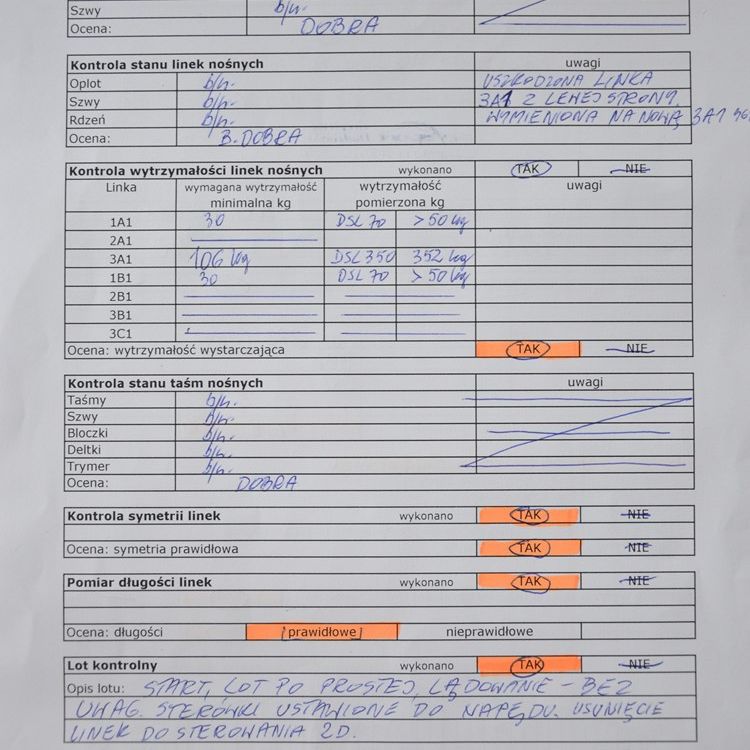 Szwy b/n.
Ocena: DOBRA
Kontrola stanu linek nośnych uwagi
Oplot b/n. USZKODZONA LINKA
Szwy b/n. 3A1 Z LEWEJ STRONY.
Rdzeń b/n. WYMIENIONA NA NOWĄ 3A1
Ocena: B. DOBRA
Kontrola wytrzymałości linek nośnych wykonano TAK NIE
Linka wymagana wytrzymałość minimalna kg wytrzymałość pomierzona kg uwagi
1A1 30 DSL 70 >50 kg
2A1
3A1 106 kg DSL 350 352 kg
1B1 30 DSL 70 >50 kg
2B1
3B1
3C1
Ocena: wytrzymałość wystarczająca TAK NIE
Kontrola stanu taśm nośnych uwagi
Taśmy b/n.
Szwy b/n.
Bloczki b/n.
Deltki b/n.
Trymer b/n.
Ocena: DOBRA
Kontrola symetrii linek wykonano TAK NIE
Ocena: symetria prawidłowa TAK NIE
Pomiar długości linek wykonano TAK NIE
Ocena: długości prawidłowe nieprawidłowe
Lot kontrolny wykonano TAK NIE
Opis lotu: START, LOT PO PROSTEJ, LĄDOWANIE - BEZ
UWAG. STERÓWKI USTAWIONE DO NAPĘDU. USUNIĘCIE
LINEK DO STEROWANIA 2D.